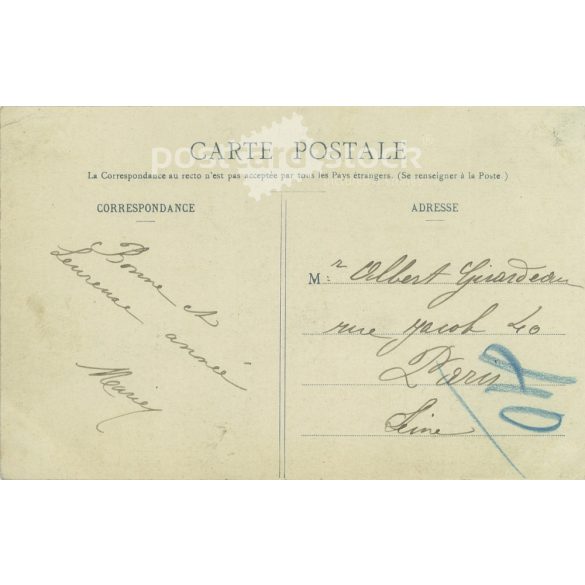 CARTE POSTALE
La Correspondance au recto n'est pas acceptée par tous les Pays étrangers. (Se renseigner à la Poste.)
CORRESPONDANCE
Bonne et
heureuse année
ADRESSE
M r Albert Girardeau
rue Jacob 40
Paris
Seine
40
postcardstock